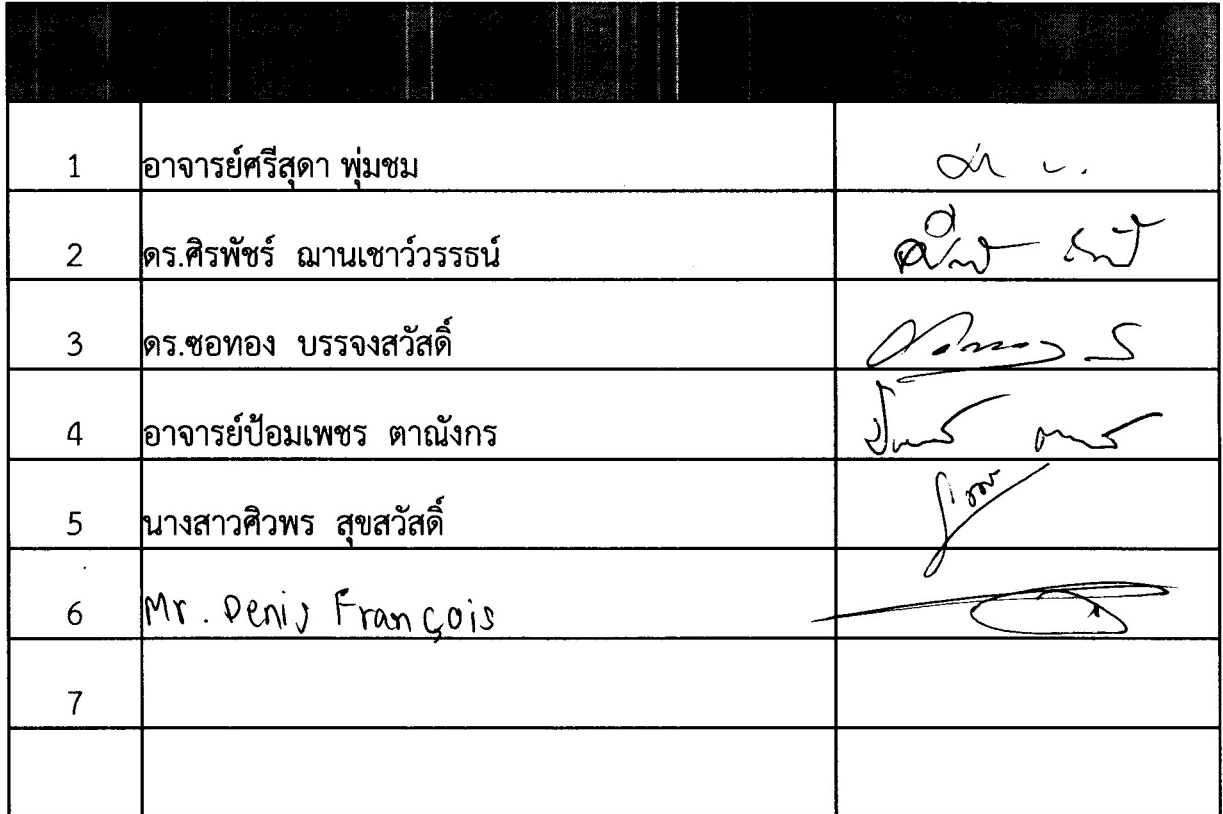 1 อาจารย์ศรีสุดา พุ่มชม
2 ดร.ศิรพัชร์ ฌานเชาว์วรรธน์
3 ดร.ซอทอง บรรจงสวัสดิ์
4 อาจารย์ป้อมเพชร ตาณังกร
5 นางสาวศิวพร สุขสวัสดิ์
6 Mr. Denis François
7